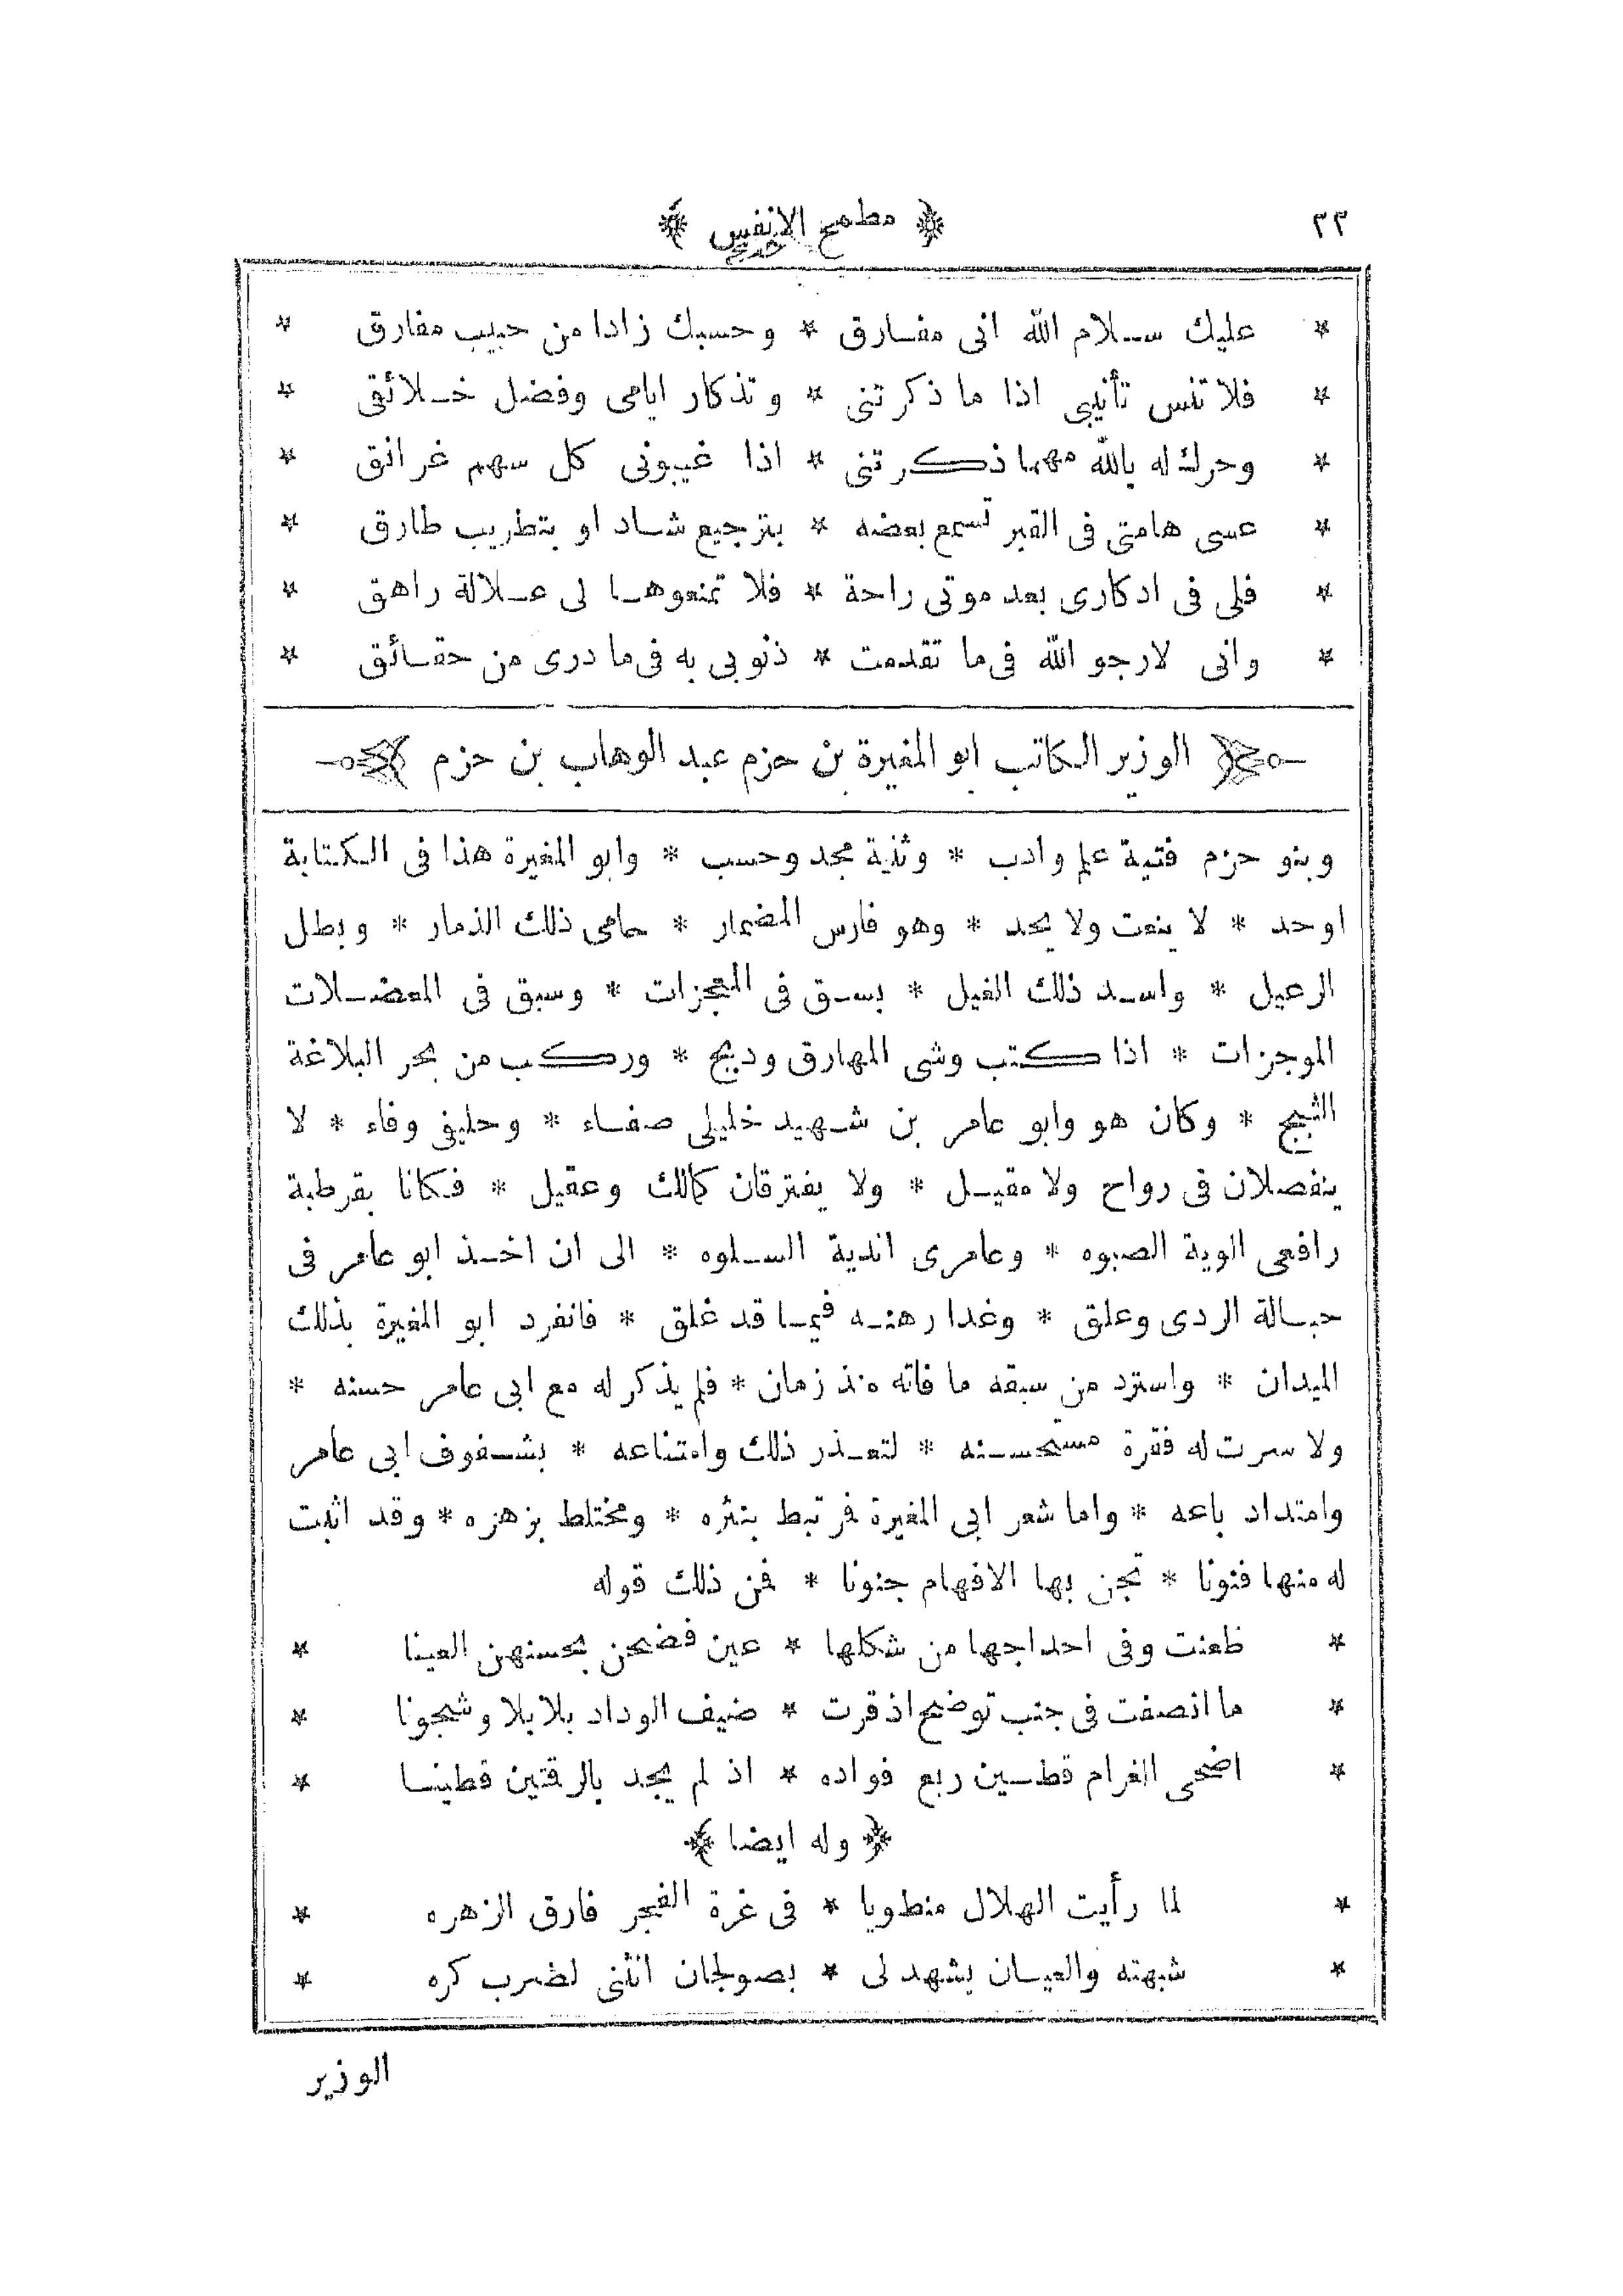 ٢٢ ﴿ مطمح الانفس ﴾
* عليك سلام الله انى مفارق * وحسبك زادا من حبيب مفارق *
* فلا تنس تأنيبى اذا ما ذكرتنى * وتذكار ايامى وفضل خلائقى *
* وحرك له بالله مهما ذكرتنى * اذا غيبونى كل سهم غرانق *
* عسى هامتى فى القبر تسمع بعضه * بترجيع شاد او بتطريب طارق *
* فلى فى ادكارى بعد موتى راحة * فلا تمنعوها لى علالة راهق *
* وانى لارجو الله فى ما تقدمت * ذنوبى به فى ما درى من حقائق *
الوزير الكاتب ابو المغيرة بن حزم عبد الوهاب بن حزم
وبنو حزم فتية علم وادب * وثنية مجد وحسب * وابو المغيرة هذا فى الكتابة
اوحد * لا ينعت ولا يحد * وهو فارس المضمار * حامى ذلك الذمار * وبطل
الرعيل * واسد ذلك الغيل * بسق فى المعجزات * وسبق فى المعضلات
الموجزات * اذا كتب وشى المهارق ودبج * وركب من بحر البلاغة
الثبج * وكان هو وابو عامر بن شهيد خليلى صفاء * وحليفى وفاء * لا
ينفصلان فى رواح ولا مقيل * ولا يفترقان كمالك وعقيل * فكانا بقرطبة
رافعى الوية الصبوه * وعامرى اندية السلوه * الى ان اخذ ابو عامر فى
حبالة الردى وعلق * وغدا رهنه فيها قد غلق * فانفرد ابو المغيرة بذلك
الميدان * واسترد من سبقه ما فاته منذ زمان * فلم يذكر له مع ابى عامر حسنه *
ولا سرت له فقرة مستحسنه * لتعذر ذلك وامتناعه * بشفوف ابى عامر
وامتداد باعه * واما شعر ابى المغيرة فمرتبط بنثره * ومختلط بزهره * وقد اثبت
له منها فنونا * تجن بها الافهام جنونا * فمن ذلك قوله
* ظعنت وفى احداجها من شكلها * عين فضحن بحسنهن العينا *
* ما انصفت فى جنب توضح اذ قرت * ضيف الوداد بلابلا وشجونا *
* اضحى الغرام قطين ربع فواده * اذ لم يجد بالرقتين قطينا *
﴿ وله ايضا ﴾
* لما رأيت الهلال منطويا * فى غرة الفجر فارق الزهره *
* شبهته والعيان يشهد لى * بصولجان انثنى لضرب كره *
الوزير